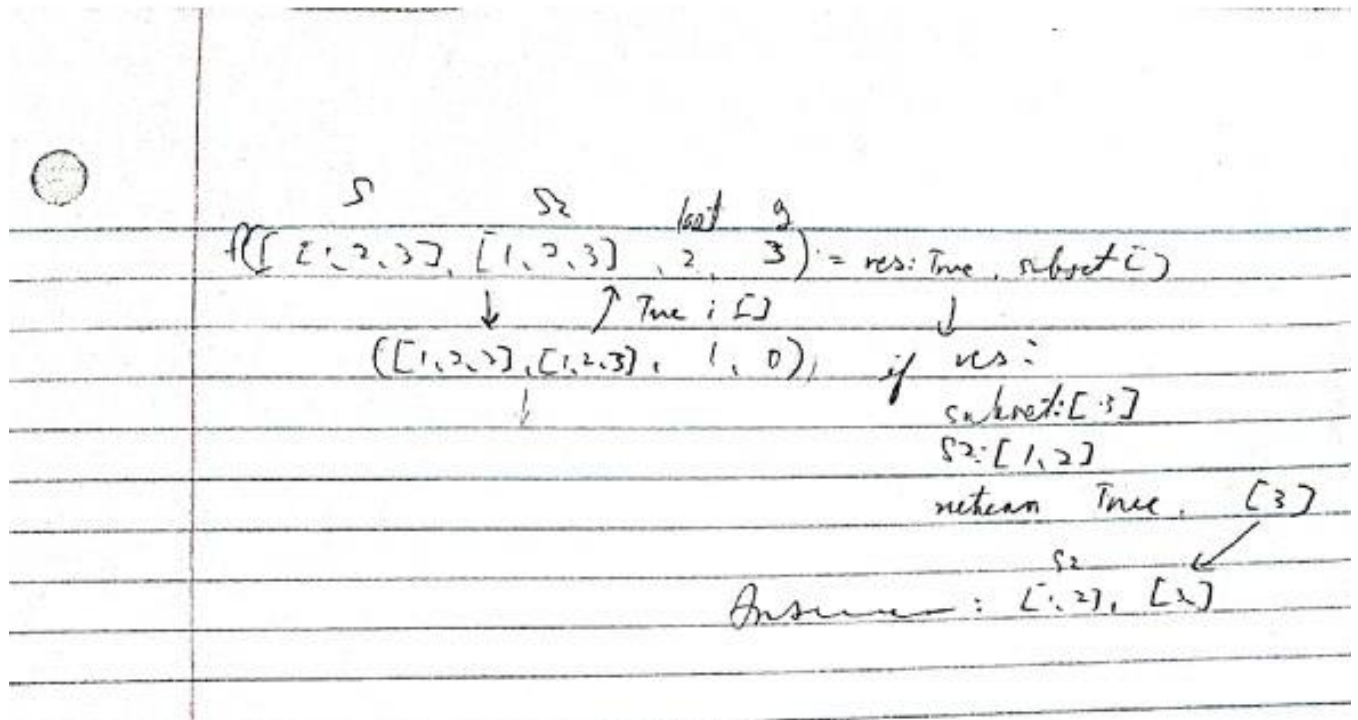 S S2 last g
f([1,2,3], [1,2,3], 2, 3) := res: True, subset []
↓ ↑ True ; [] ↓
([1,2,3],[1,2,3], 1, 0), if res:
↓ subset:[3]
S2:[1,2]
return True, [3]
S2
Answer: [1,2], [3]